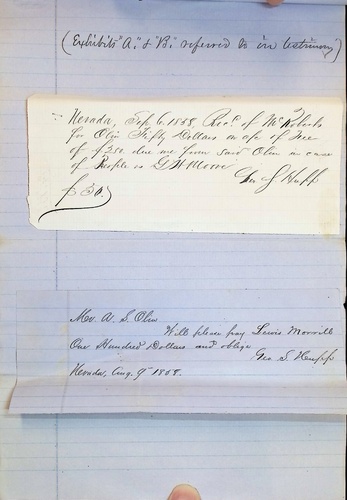 (Exhibits "A." & "B." referred to in testimony)
Nevada, Sep 6. 1858, Recd of Mr Roberts
for Olin Fifty Dollars on a/c of Fee
of $250. due me from said Olin in case
of People vs G. H. Moore
$50.
Geo S Hupp
Mr. A. S. Olin
Will please pay Lewis Morrill
One Hundred Dollars and oblige
Geo S. Hupp
Nevada, Aug. 9th 1858.